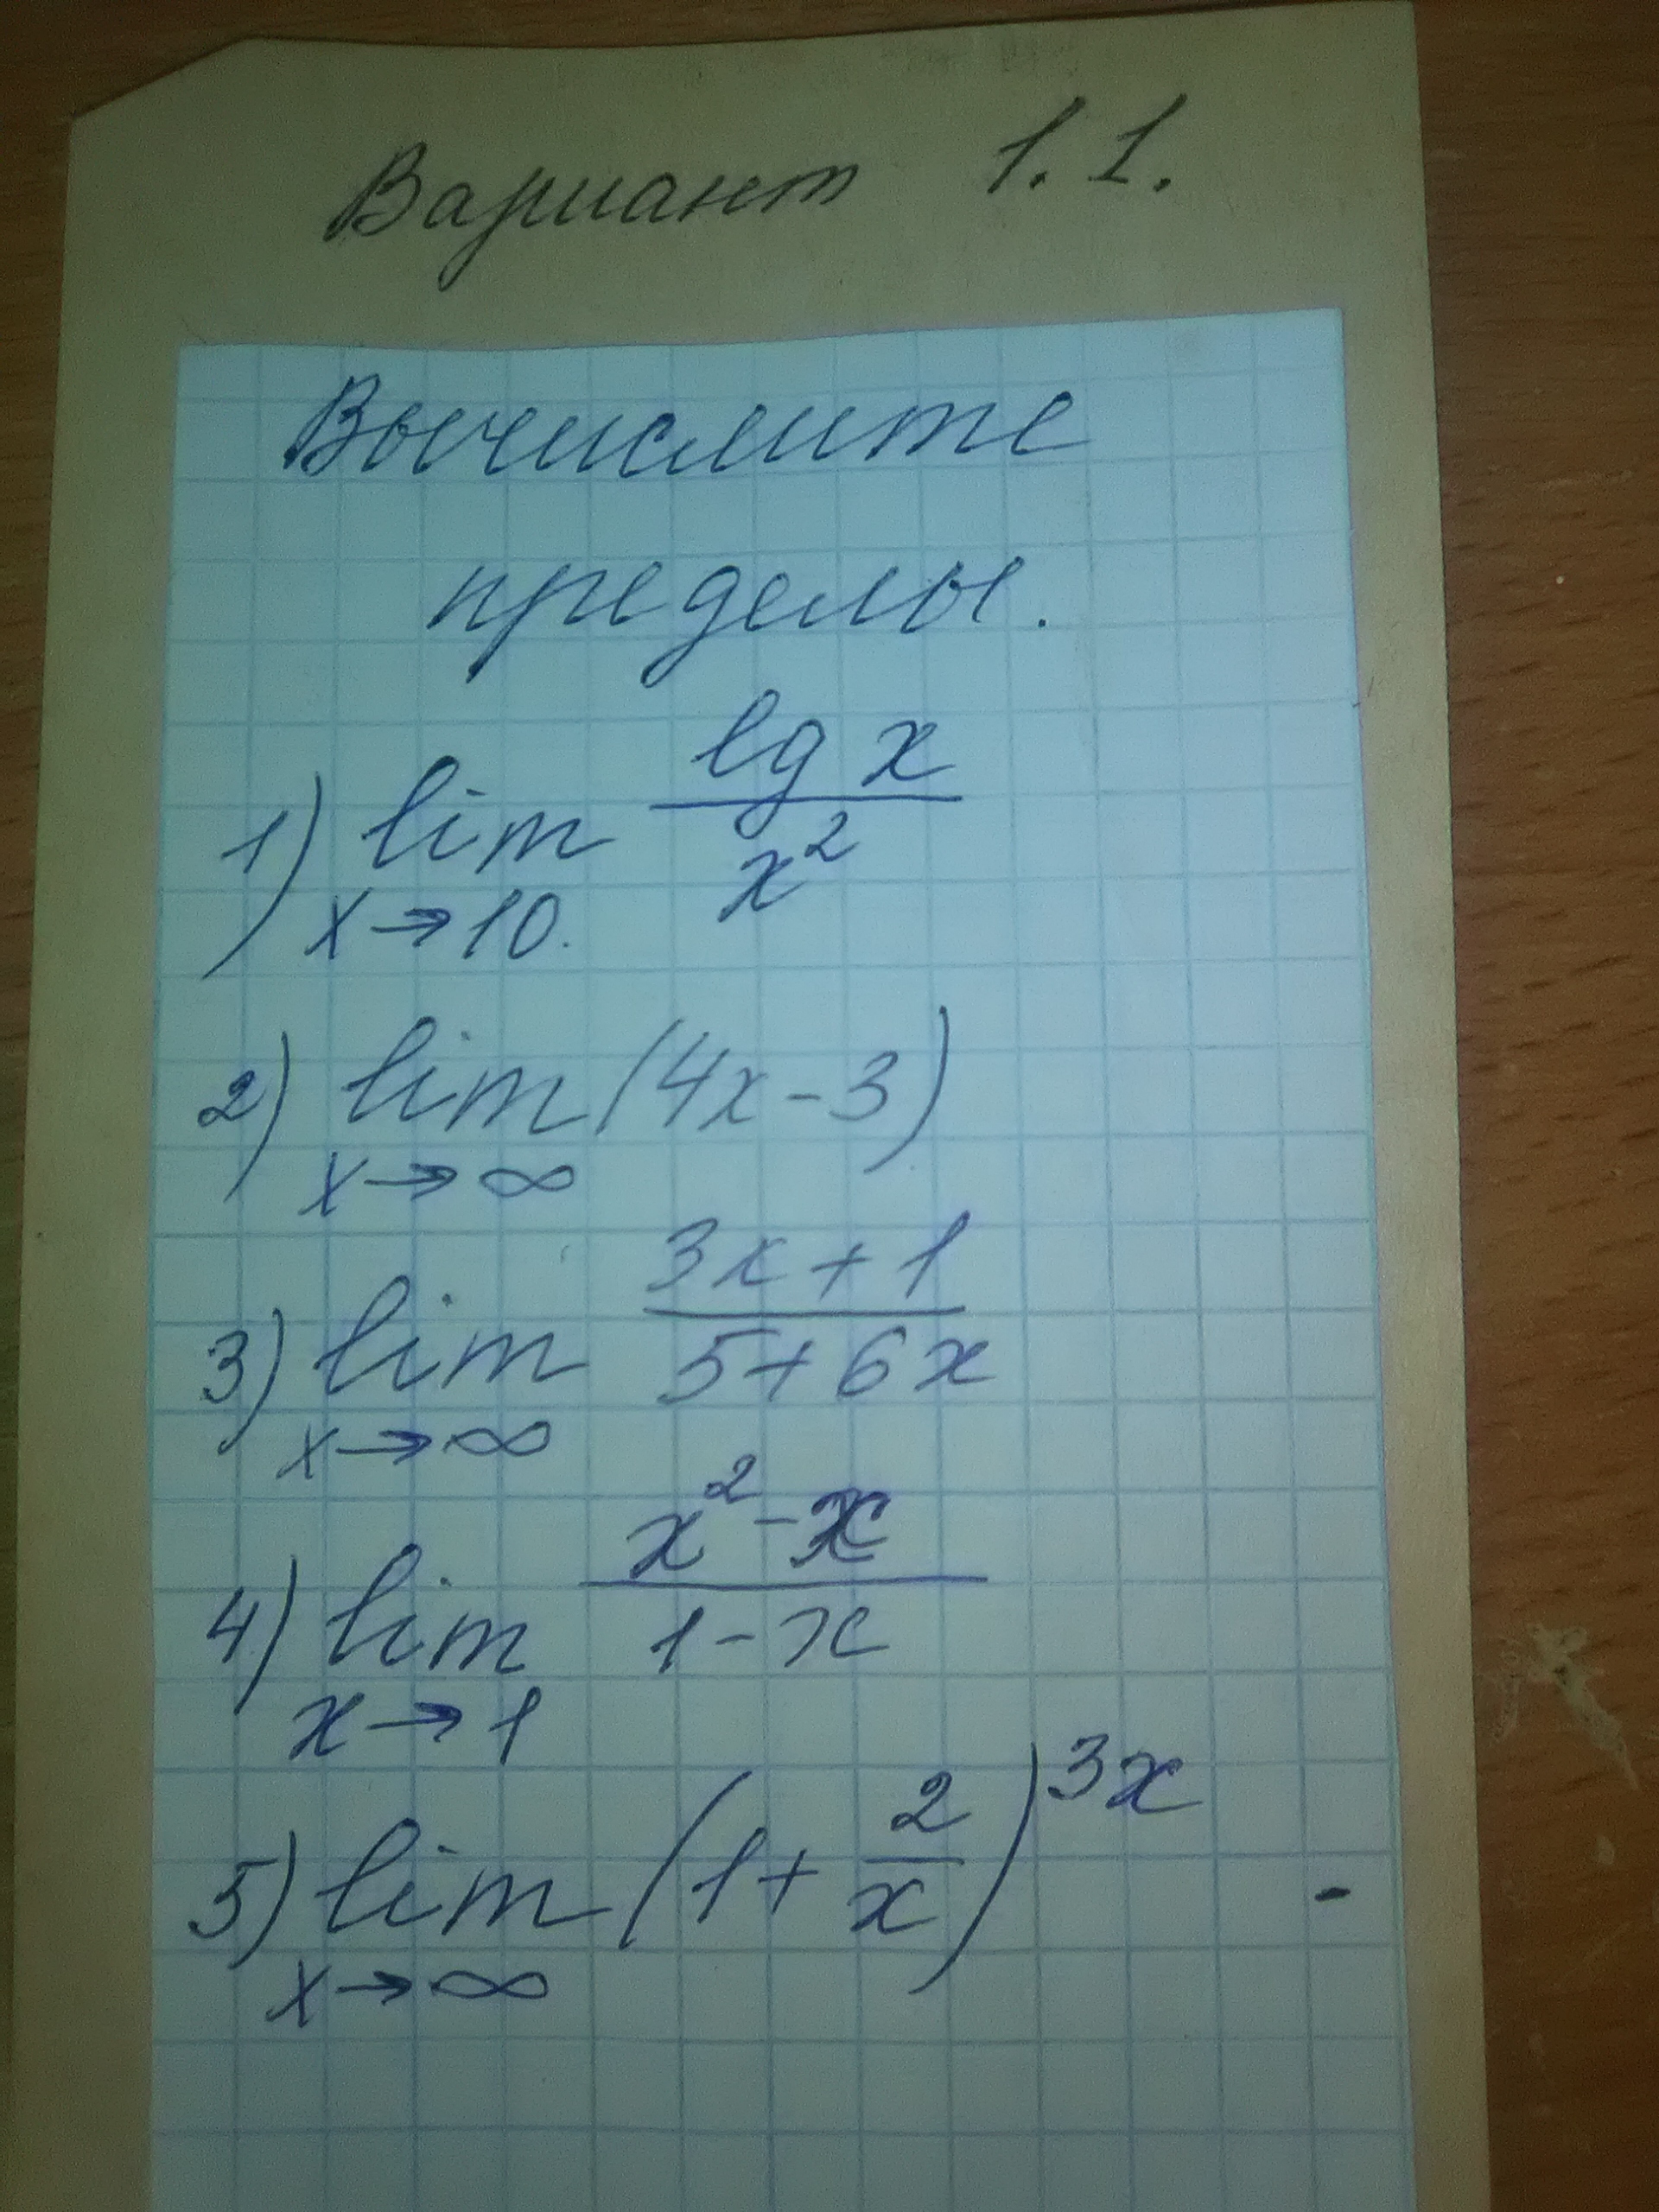 Вариант 1.1.
Вычислите
пределы.
1) lim x→10. lg x / x²
2) lim x→∞ (4x-3)
3) lim x→∞ 3x+1 / 5+6x
4) lim x→1 x²-x / 1-x
5) lim x→∞ (1+2/x)^3x